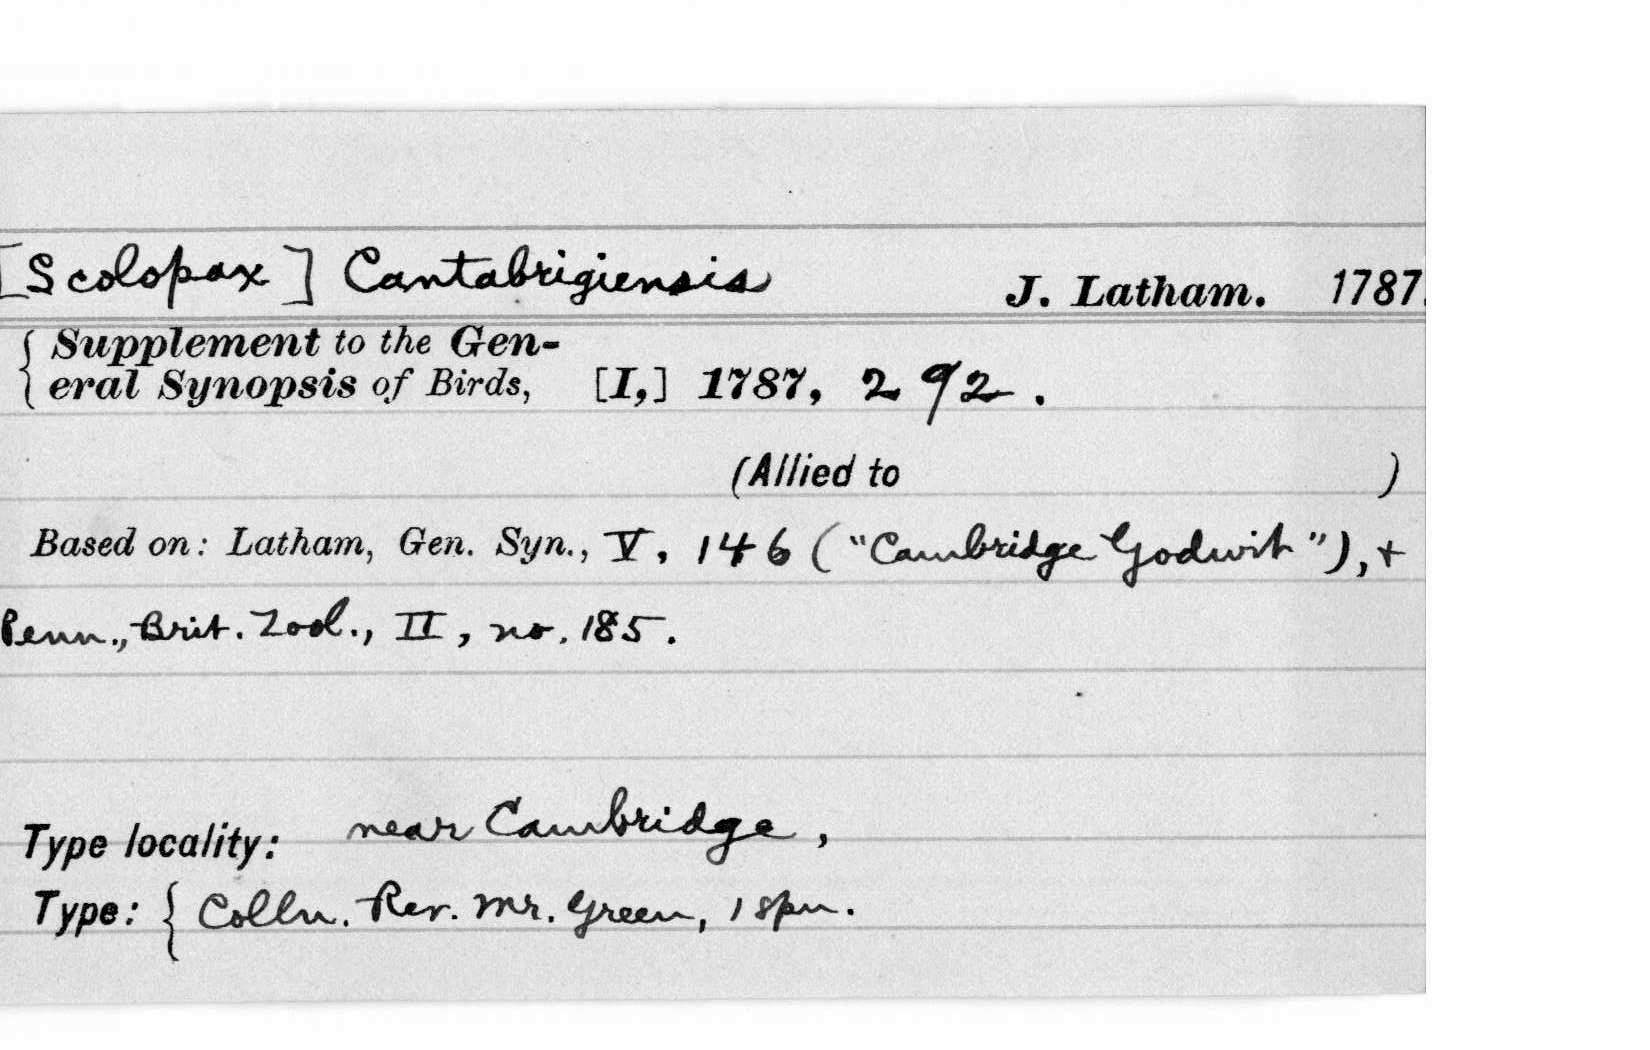 [Scolopax] Cantabrigiensis J. Latham. 1787.
{ Supplement to the Gen-
eral Synopsis of Birds, [I,] 1787, 292.
(Allied to )
Based on: Latham, Gen. Syn., V, 146 ("Cambridge Godwit"), +
Penn., Brit. Zool., II, no. 185.
Type locality: near Cambridge,
Type: { Colln. Rev. Mr. Green, 1 spn.